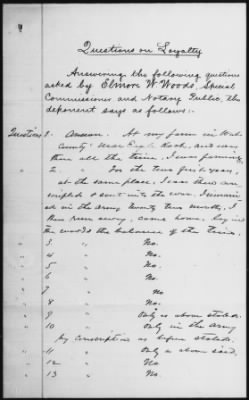 Questions on Loyalty
Answering the following questions
asked by Elmore W Woods, Special
Commissioner and Notary Public, the
deponent says as follows:-
Questions 1- Answer. At my farm in
County near Rock, and was
there all the time. I was farming
2. " For the two first years,
at the same place. I was then con-
scripted & sent into the war. I remain-
ed in the army twenty two months, I
then run away, came home, lay in
the woods the balance of the time.
3 " No.
4 " No.
5 " No.
6 " No
7 " No
8 " No.
9 " Only as above stated.
10 " Only in the army
by conscription as before stated.
11 " Only as above said.
12 " No
13 " No.